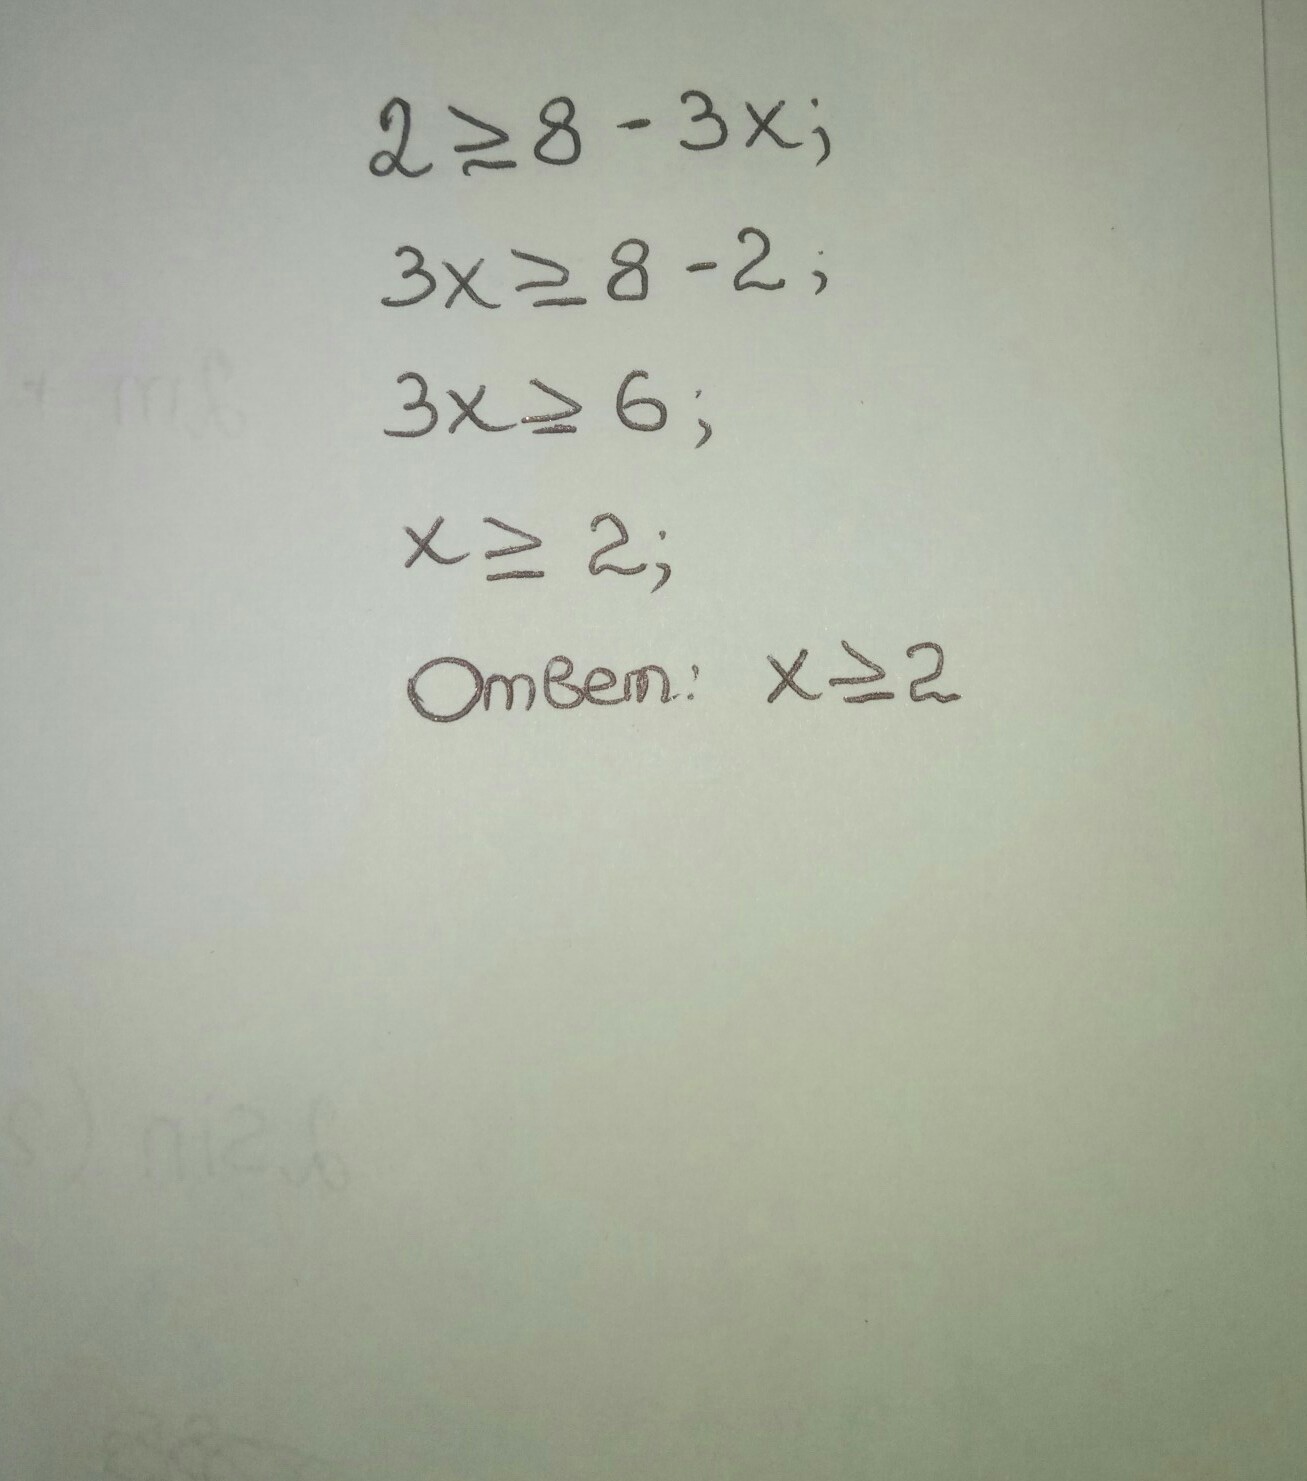 2 ≥ 8 - 3x;
3x ≥ 8 - 2;
3x ≥ 6;
x ≥ 2;
Ответ: x ≥ 2